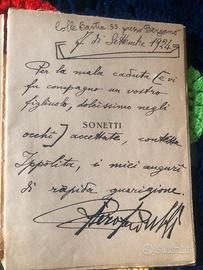 Colle Bastia ss. presso Bergamo
7. di Settembre 1924
Per la mala caduta (e vi
fu compagno un vostro
figliuolo, dolcissimo negli
SONETTI
occhi) accettate, contessa
Ippolita, i miei auguri
di rapida guarigione.
subito.it